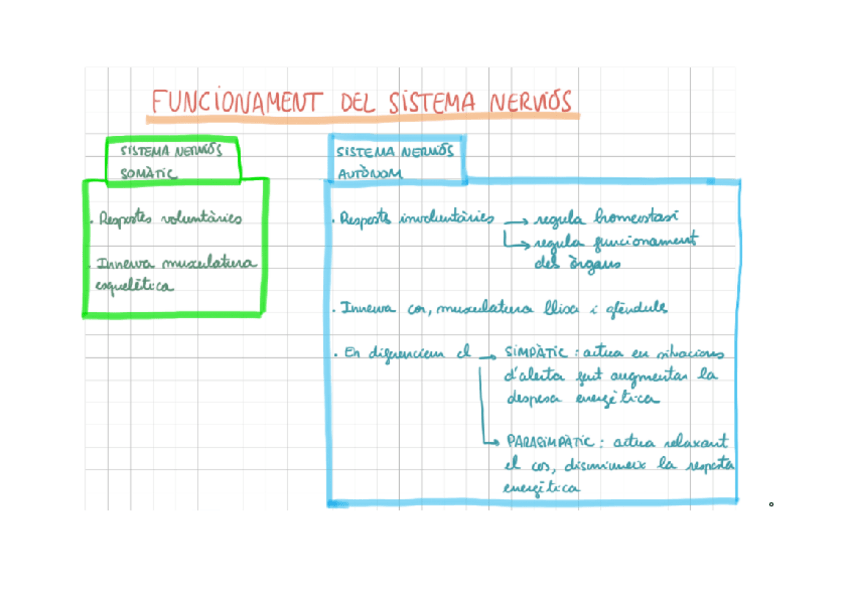 FUNCIONAMENT DEL SISTEMA NERVIÓS
SISTEMA NERVIÓS
SOMÀTIC
. Respostes voluntàries
. Innerva musculatura
esquelètica
SISTEMA NERVIÓS
AUTÒNOM
. Resposta involuntàries → regula homeostasi
→ regula funcionament
dels òrgans
. Innerva cor, musculatura llisa i glàndules
. En diferenciem el → SIMPÀTIC : actua en situacions
d'alerta fent augmentar la
despesa energètica
→ PARASIMPÀTIC : actua relaxant
el cos, disminueix la resposta
energètica